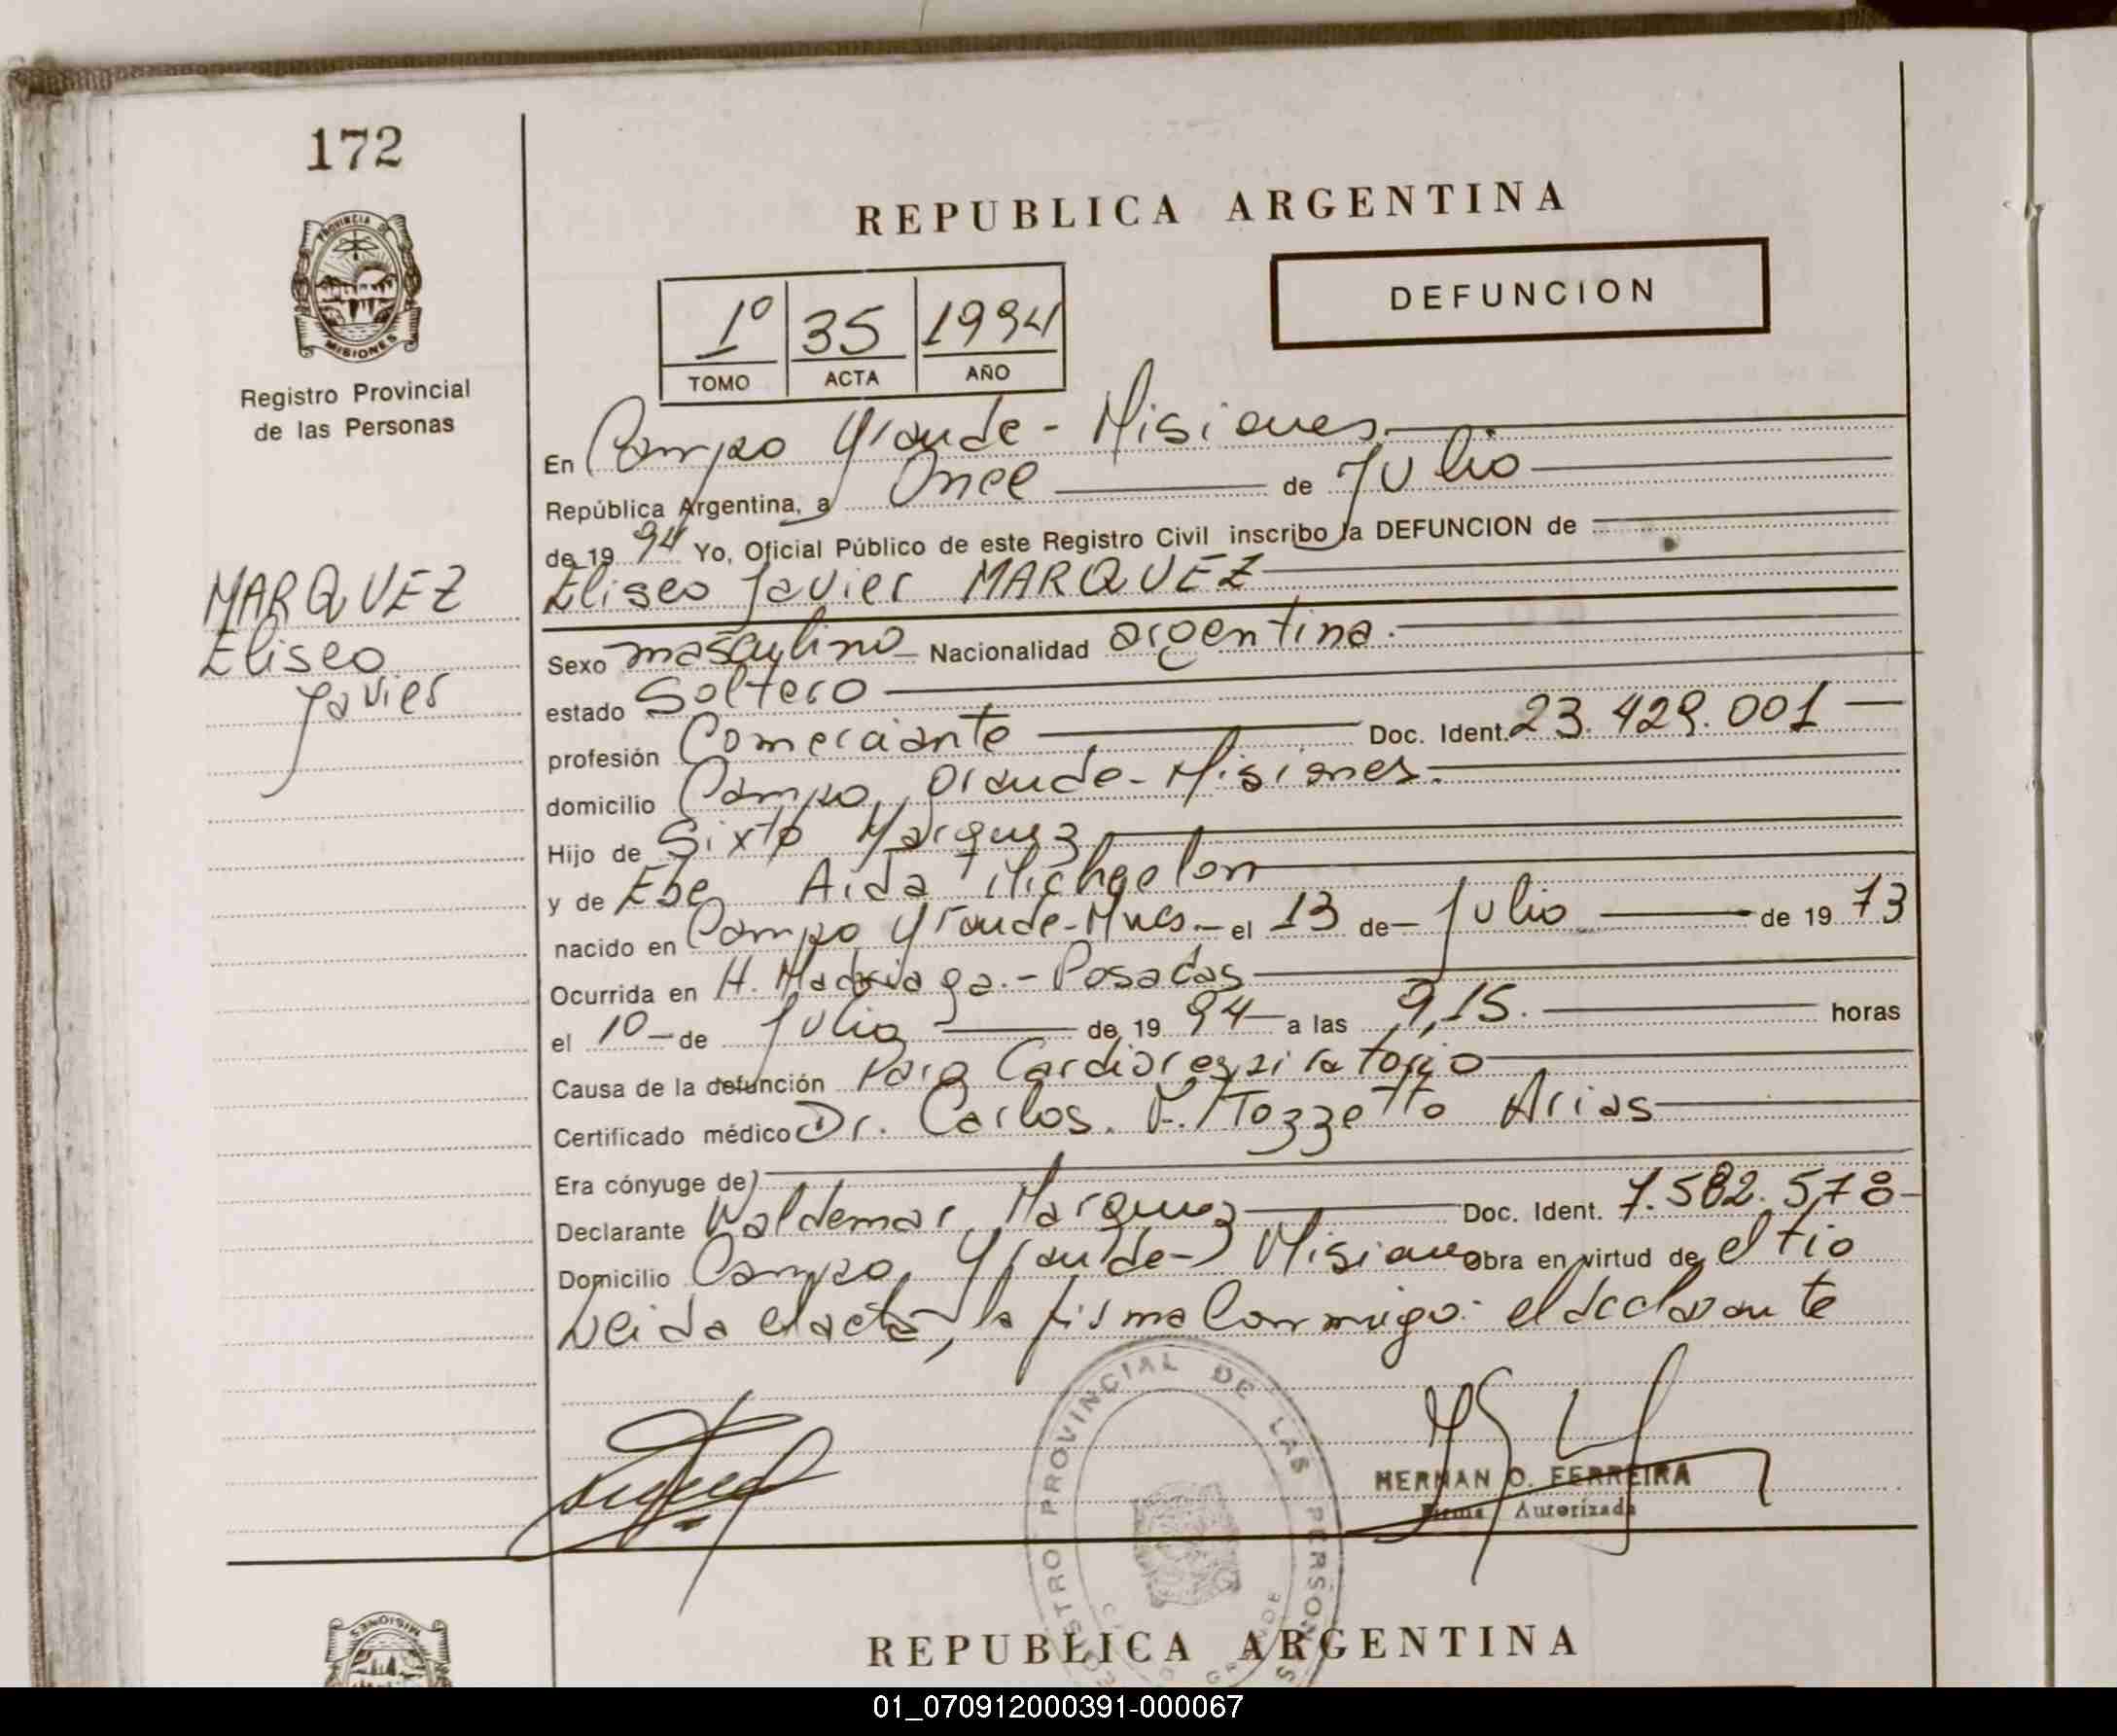 172
PROVINCIA DE
MISIONES
Registro Provincial
de las Personas
MARQUEZ
Eliseo
Javier
REPUBLICA ARGENTINA
DEFUNCION
1º 35 1994
TOMO ACTA AÑO
En Campo Grande - Misiones
República Argentina, a Once de Julio
de 19 94 Yo, Oficial Público de este Registro Civil inscribo la DEFUNCION de
Eliseo Javier MARQUEZ
Sexo masculino Nacionalidad argentina.
estado Soltero
profesión Comerciante Doc. Ident. 23.429.001
domicilio Campo Grande - Misiones.
Hijo de Sixto Marquez
y de Ebe Aida
nacido en Campo Grande - Mnes. - el 13 de Julio de 19 73
Ocurrida en H. Madariaga. - Posadas
el 10 de Julio de 19 94 a las 9,15. horas
Causa de la defunción Paro Cardiorespiratorio
Certificado médico Dr. Carlos. Tozzetto Arias
Era cónyuge de)
Declarante Waldemar Marquez Doc. Ident. 7.582.578
Domicilio Campo Grande - Misiones obra en virtud de el tio
Leida el acta, la firma Conmigo: el declarante
REGISTRO PROVINCIAL DE LAS PERSONAS
GRANDE
HERNAN O. FERREIRA
Firma Autorizada
MISIONES
REPUBLICA ARGENTINA
01_070912000391-000067